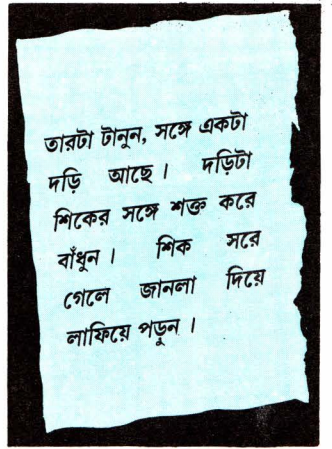 তারটা টানুন, সঙ্গে একটা
দড়ি আছে। দড়িটা
শিকের সঙ্গে শক্ত করে
বাঁধুন। শিক সরে
গেলে জানলা দিয়ে
লাফিয়ে পড়ুন।